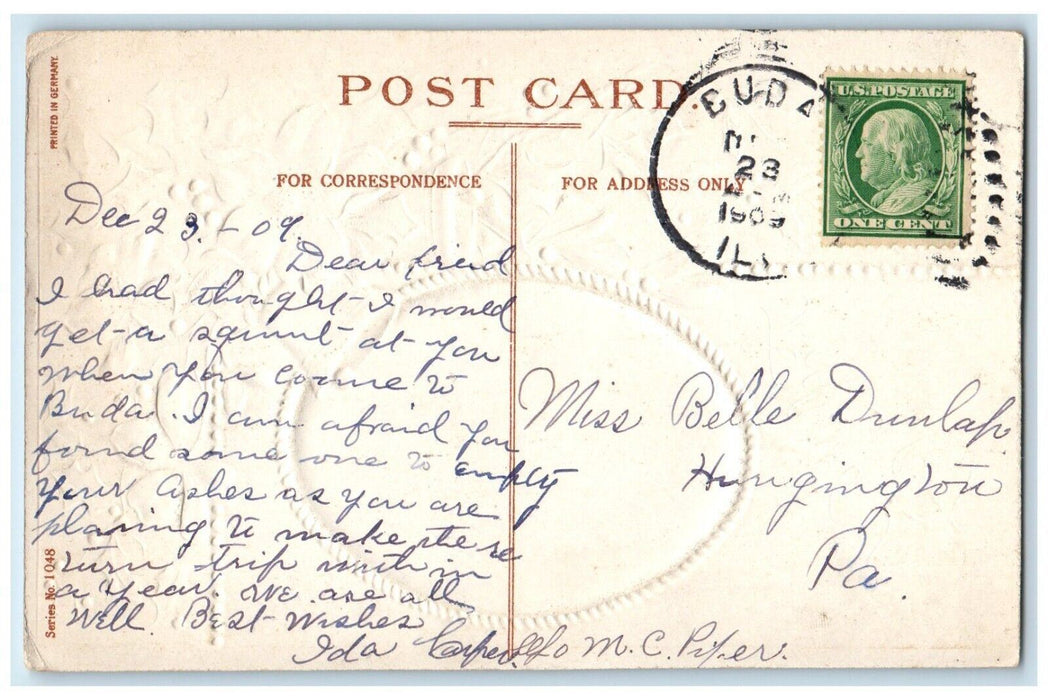 PRINTED IN GERMANY.
POST CARD.
FOR CORRESPONDENCE
FOR ADDRESS ONLY
BUDA
23
1909
ILL
U.S. POSTAGE
ONE CENT
Dec 23. - 09.
Dear friend
I had thought I would
get a squint at you
when you Coome to
Buda. I am afraid you
found some one to empty
your Ashes as you are
planing to make the re
turn trip with in
a year. We are all
Well. Best Wishes
Ida
Series No. 1048
Miss Belle Dunlap
Hungington
Pa.
c/o M. C. Piper.